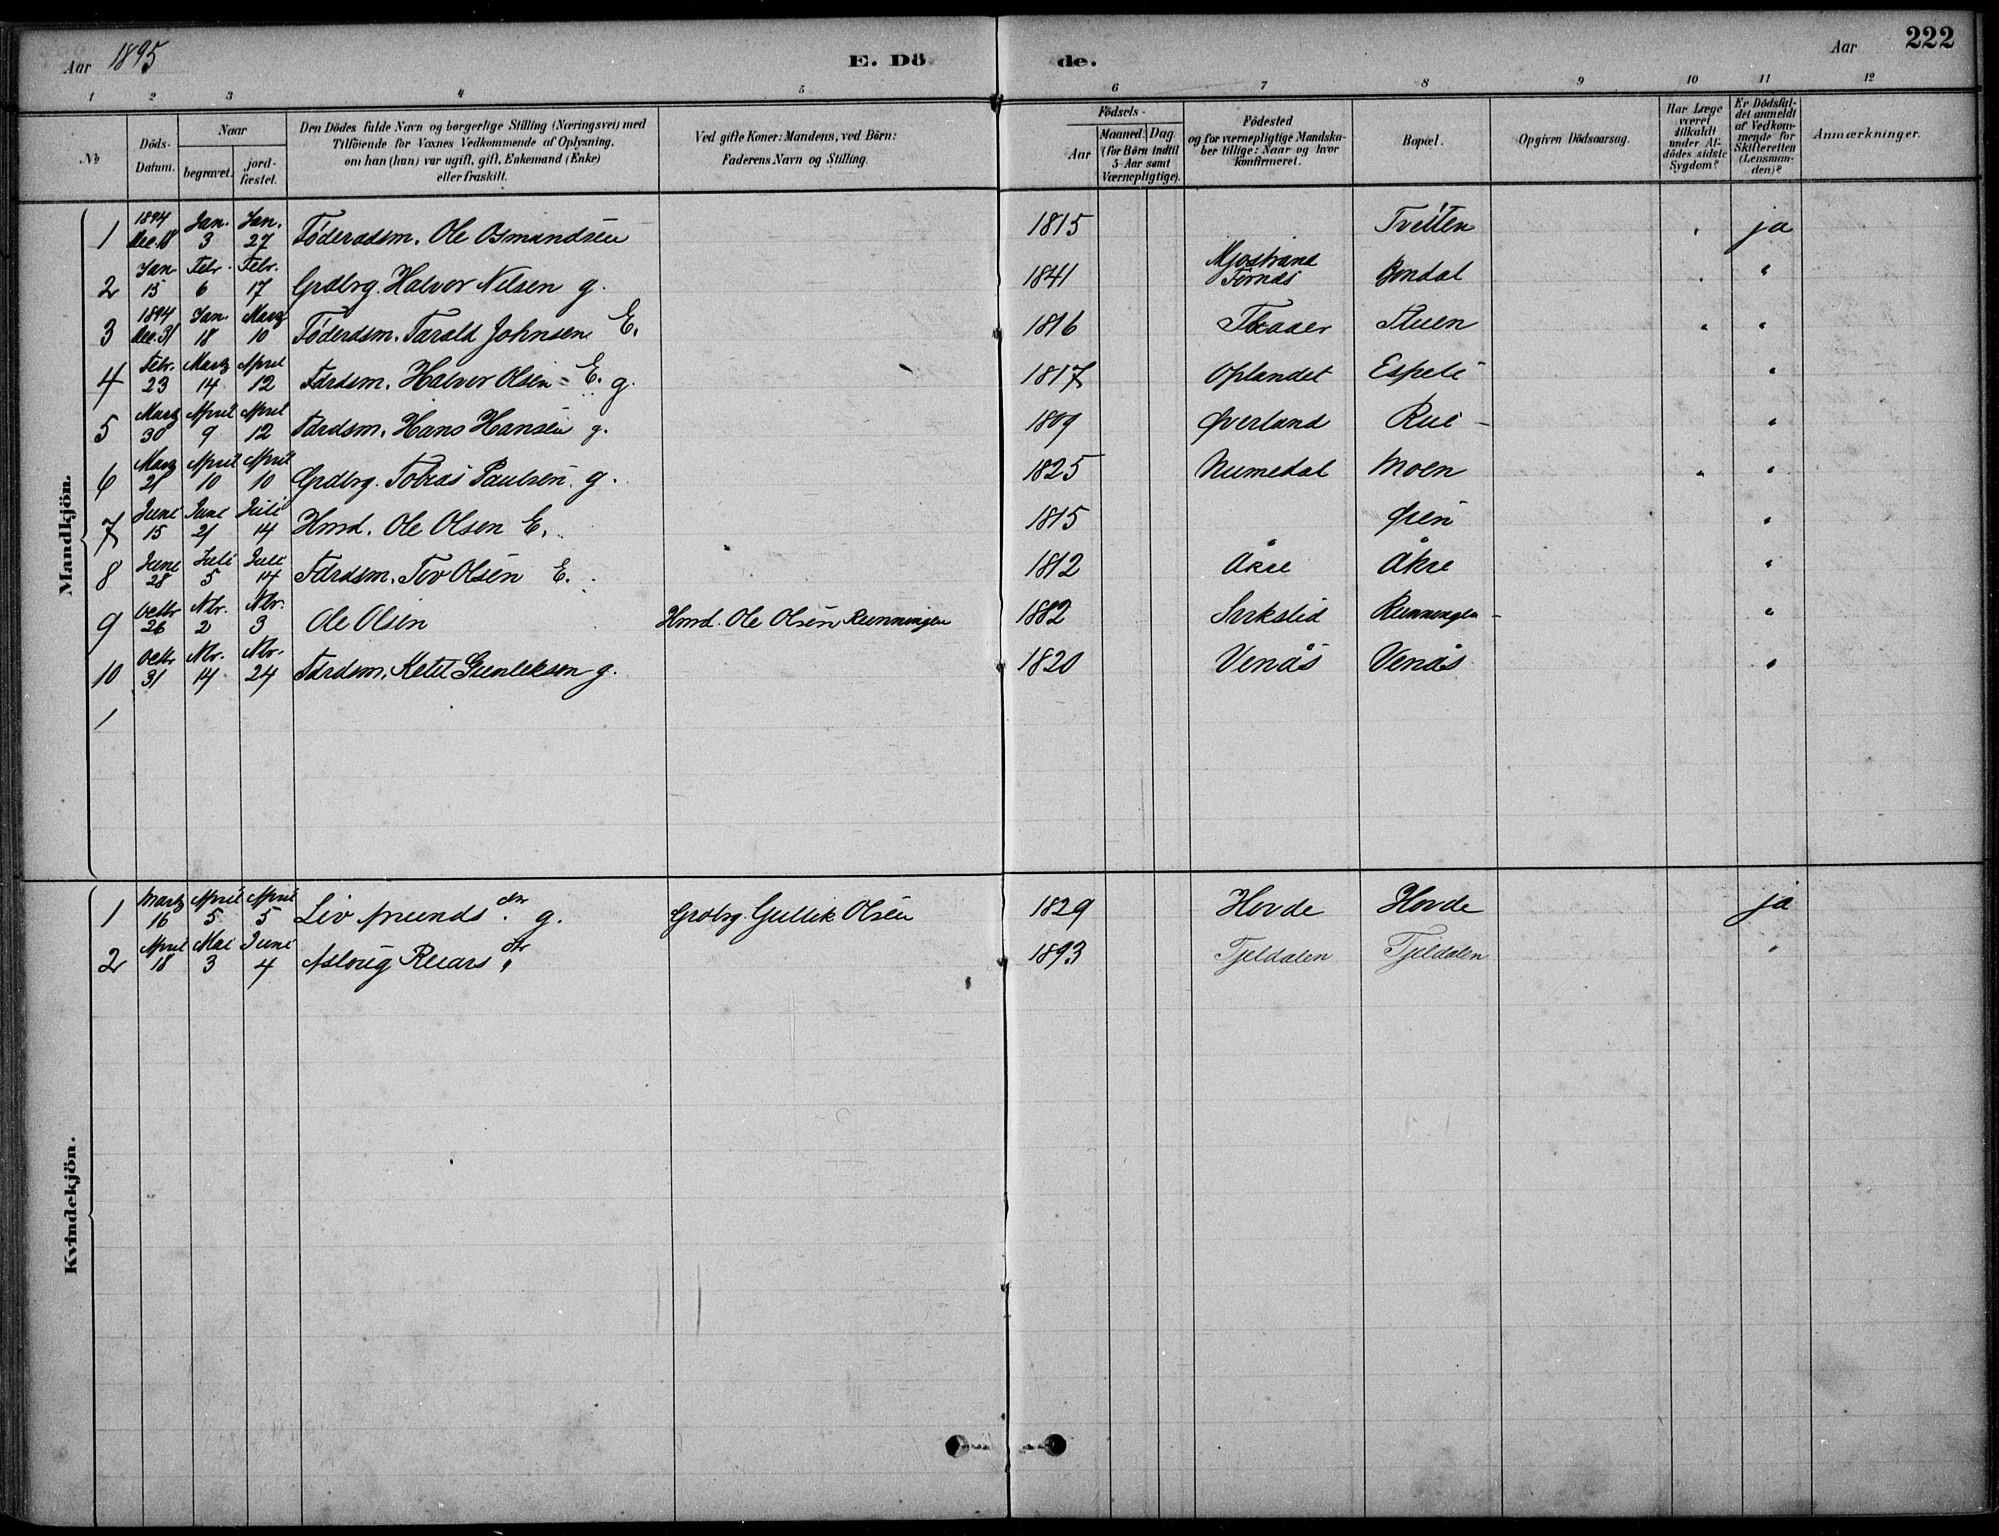 Aar 1895 E. Dö de. Aar 222
1 2 3 4 5 6 7 8 9 10 11 12
No Döds-Datum. Naar begravet. jord-fæstet. Den Dödes fulde Navn og borgerlige Stilling (Næringsvei) med Tilföiende for Voxnes Vedkommende af Oplysning, om han (hun) var ugift, gift, Enkemand (Enke) eller fraskilt. Ved gifte Koner: Mandens, ved Börn: Faderens Navn og Stilling. Födsels- Aar Maaned. Dag. (for Börn indtil 5 Aar samt Værnepligtige). Födested og for værnepligtige Mandskaber tillige: Naar og hvor konfirmeret. Bopæl. Opgiven Dödsaarsag. Har Læge været tilkaldt under Afdödes sidste Sygdom? Er Dödsfaldet anmeldt af Vedkommende for Skifteretten (Lensmanden)? Anmærkninger.
Mandkjön.
1 1894 Dec. 18 Jan. 3 Jan. 27 Föderadsm. Ole Osmundsen 1815 Tveiten ja
2 Jan 15 Febr. 6 Febr. 17 Grdbrg. Halvor Nilsen g. 1841 Mjøstrand Bondal "
3 1894 Dec. 31 Jan. 18 Marts 10 Föderdsm. Tarald Johnsen E. 1816 Stuen " "
4 Febr. 23 Marts 14 April 12 Fdrdsm. Halvor Olsen E. g. 1817 Oplandet Espeli "
5 Marts 30 April 9 April 12 Fdrdsm. Hans Hansen g. 1809 Øverland Rui "
6 Marts 21 April 10 April 10 Grdbrg. Tobias Paulsen g. 1825 Numedal Moen " "
7 Juni 15 Juni 21 Juli 14 Hmd. Ole Olsen E. 1815 Øien "
8 Juni 28 Juli 5 Juli 14 Fdrdsm. Tov Olsen E. 1812 Åkre Åkre "
9 Octbr 26 Nbr. 2 Nbr. 3 Ole Olsen Hmd. Ole Olsen Runningen 1882 Runningen "
10 Octbr 31 Nbr. 14 Nbr. 24 Fdrdsm. Ketil Gunleksen g. 1820 Venås Venås "
1
Kvindekjön.
1 Marts 16 April 5 April 5 Liv Amunds dtr g. Grdbrg. Gullik Olsen 1829 Hovde Hovde ja
2 April 18 Mai 3 Juni 4 Asloug Ruars dtr 1893 Tjeldalen Tjeldalen "